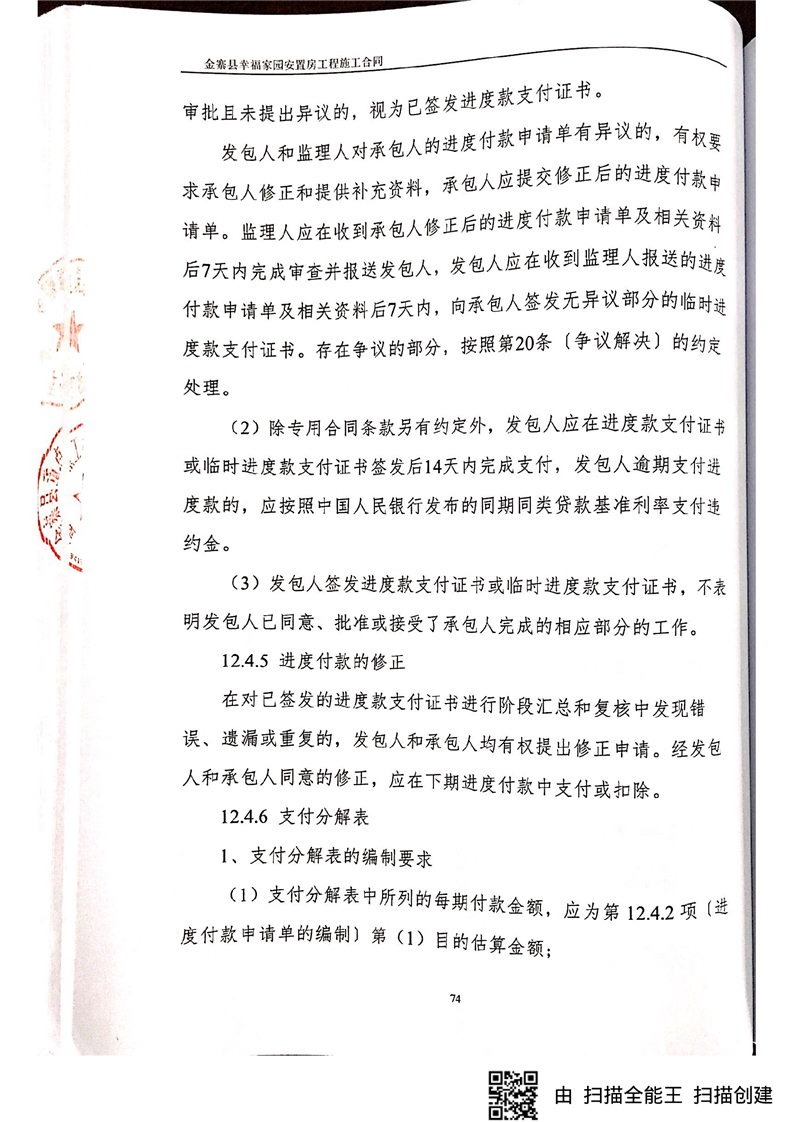 金寨县幸福家园安置房工程施工合同
审批且未提出异议的，视为已签发进度款支付证书。
发包人和监理人对承包人的进度付款申请单有异议的，有权要
求承包人修正和提供补充资料，承包人应提交修正后的进度付款申
请单。监理人应在收到承包人修正后的进度付款申请单及相关资料
后7天内完成审查并报送发包人，发包人应在收到监理人报送的进度
付款申请单及相关资料后7天内，向承包人签发无异议部分的临时进
度款支付证书。存在争议的部分，按照第20条〔争议解决〕的约定
处理。
（2）除专用合同条款另有约定外，发包人应在进度款支付证书
或临时进度款支付证书签发后14天内完成支付，发包人逾期支付进
度款的，应按照中国人民银行发布的同期同类贷款基准利率支付违
约金。
（3）发包人签发进度款支付证书或临时进度款支付证书，不表
明发包人已同意、批准或接受了承包人完成的相应部分的工作。
12.4.5 进度付款的修正
在对已签发的进度款支付证书进行阶段汇总和复核中发现错
误、遗漏或重复的，发包人和承包人均有权提出修正申请。经发包
人和承包人同意的修正，应在下期进度付款中支付或扣除。
12.4.6 支付分解表
1、支付分解表的编制要求
（1）支付分解表中所列的每期付款金额，应为第 12.4.2 项〔进
度付款申请单的编制〕第（1）目的估算金额；
74
由 扫描全能王 扫描创建